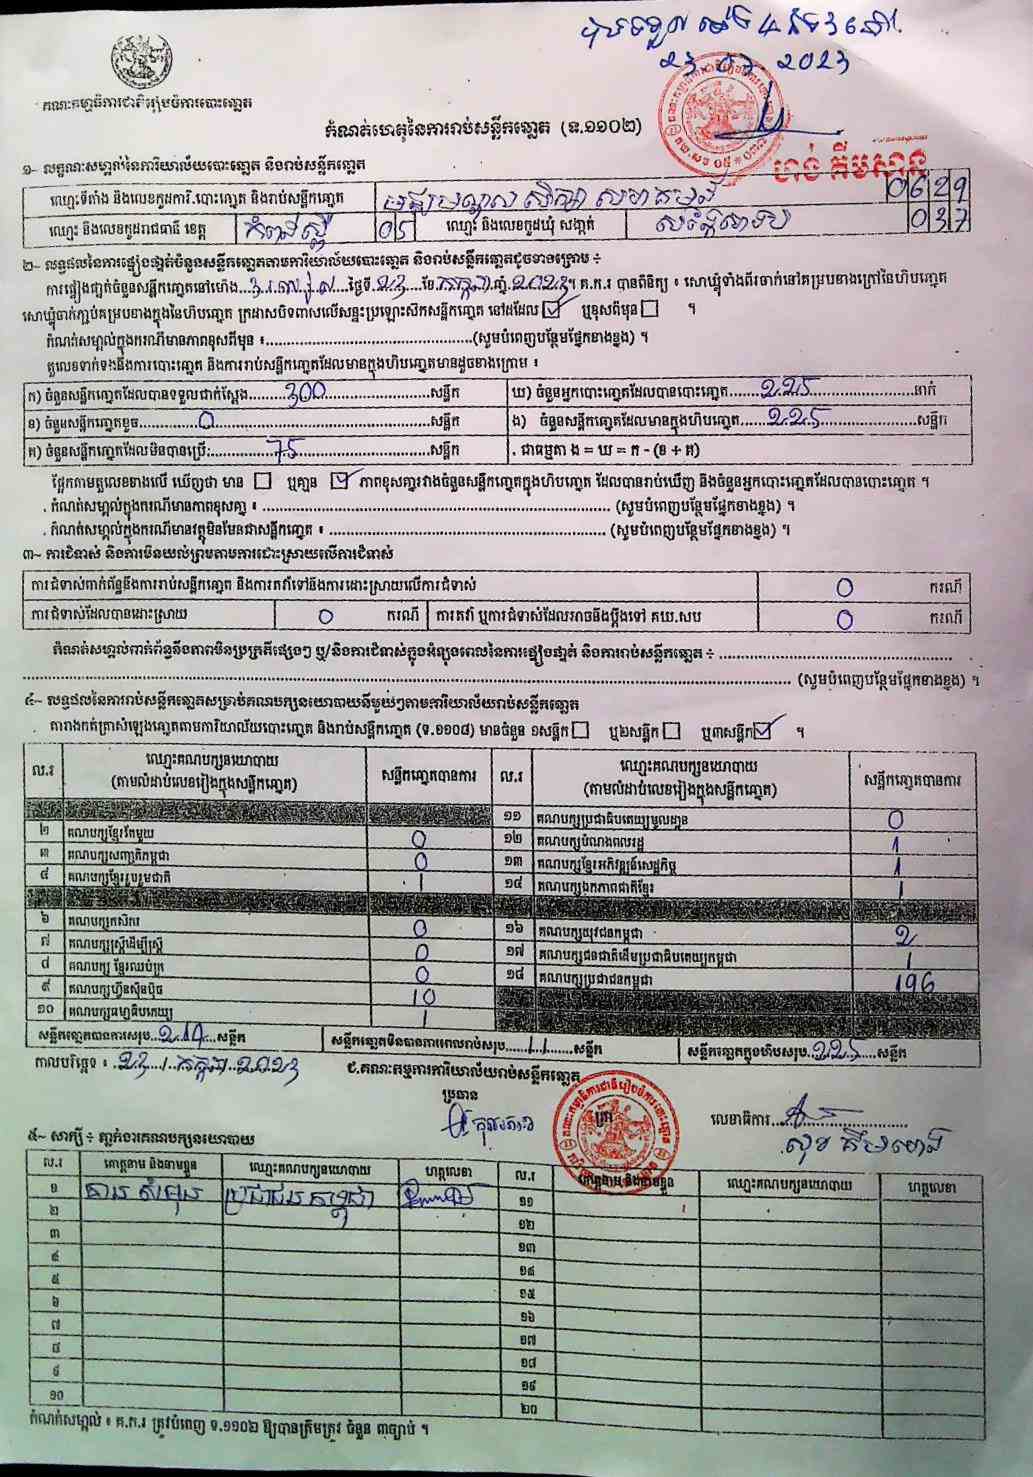 ២៣ ០៧ 2023
គណៈកម្មាធិការជាតិរៀបចំការបោះឆ្នោត
កំណត់ហេតុនៃការរាប់សន្លឹកឆ្នោត (ទ.១១០២)
ហង់ គឹមសាន
១~ លក្ខណៈសម្គាល់នៃការិយាល័យបោះឆ្នោត និងរាប់សន្លឹកឆ្នោត
ឈ្មោះទីតាំង និងលេខកូដការិ.បោះឆ្នោត និងរាប់សន្លឹកឆ្នោត 0629
ឈ្មោះ និងលេខកូដរាជធានី ខេត្ត កំពង់ស្ពឺ 05 ឈ្មោះ និងលេខកូដឃុំ សង្កាត់ 037
២~ លទ្ធផលនៃការផ្ទៀងផ្ទាត់ចំនួនសន្លឹកឆ្នោតតាមការិយាល័យបោះឆ្នោត និងរាប់សន្លឹកឆ្នោតដូចខាងក្រោម ÷
ការផ្ទៀងផ្ទាត់ចំនួនសន្លឹកឆ្នោតនៅម៉ោង ថ្ងៃទី.២៣.ខែ.កក្កដា.ឆ្នាំ.២០២៣។ គ.ក.រ បានពិនិត្យ ៖ សោឃ្មុំទាំងពីរចាក់នៅគម្របខាងក្រៅនៃហិបឆ្នោត
សោឃ្មុំចាក់ភ្ជាប់គម្របខាងក្នុងនៃហិបឆ្នោត ក្រដាសបិទពាសលើសន្ទះប្រឡោះស៊កសន្លឹកឆ្នោត នៅដដែល ☑ ឬខុសពីមុន ☐ ។
កំណត់សម្គាល់ក្នុងករណីមានភាពខុសពីមុន ៖..............................(សូមបំពេញបន្ថែមផ្នែកខាងខ្នង) ។
តួលេខទាក់ទងនឹងការបោះឆ្នោត និងការរាប់សន្លឹកឆ្នោតដែលមានក្នុងហិបឆ្នោតមានដូចខាងក្រោម ៖
ក) ចំនួនសន្លឹកឆ្នោតដែលបានទទួលជាក់ស្តែង.........300..............សន្លឹក ឃ) ចំនួនអ្នកបោះឆ្នោតដែលបានបោះឆ្នោត.......225..............នាក់
ខ) ចំនួនសន្លឹកឆ្នោតខូច.........0..............សន្លឹក ង) ចំនួនសន្លឹកឆ្នោតដែលមានក្នុងហិបឆ្នោត.....225..............សន្លឹក
គ) ចំនួនសន្លឹកឆ្នោតដែលមិនបានប្រើ:.........75..............សន្លឹក . ជាធម្មតា ង = ឃ = ក - (ខ + គ)
ផ្អែកតាមតួលេខខាងលើ ឃើញថា មាន ☐ ឬគ្មាន ☑ ភាពខុសគ្នារវាងចំនួនសន្លឹកឆ្នោតក្នុងហិបឆ្នោត ដែលបានរាប់ឃើញ និងចំនួនអ្នកបោះឆ្នោតដែលបានបោះឆ្នោត ។
. កំណត់សម្គាល់ក្នុងករណីមានភាពខុសគ្នា ៖ .............................. (សូមបំពេញបន្ថែមផ្នែកខាងខ្នង) ។
. កំណត់សម្គាល់ក្នុងករណីមានវត្ថុមិនមែនជាសន្លឹកឆ្នោត ៖ .............................. (សូមបំពេញបន្ថែមផ្នែកខាងខ្នង) ។
៣~ ការជំទាស់ និងការមិនយល់ព្រមតាមការដោះស្រាយលើការជំទាស់
ការជំទាស់ពាក់ព័ន្ធនឹងការរាប់សន្លឹកឆ្នោត និងការតវ៉ាទៅនឹងការដោះស្រាយលើការជំទាស់ 0 ករណី
ការជំទាស់ដែលបានដោះស្រាយ 0 ករណី ការតវ៉ា ឬការជំទាស់ដែលអាចនឹងប្តឹងទៅ គឃ.សប 0 ករណី
កំណត់សម្គាល់ពាក់ព័ន្ធនឹងភាពមិនប្រក្រតីផ្សេងៗ ឬ/និងការជំទាស់ក្នុងអំឡុងពេលនៃការផ្ទៀងផ្ទាត់ និងការរាប់សន្លឹកឆ្នោត ÷ ..............................
.............................. (សូមបំពេញបន្ថែមផ្នែកខាងខ្នង) ។
៤~ លទ្ធផលនៃការរាប់សន្លឹកឆ្នោតសម្រាប់គណបក្សនយោបាយនីមួយៗតាមការិយាល័យរាប់សន្លឹកឆ្នោត
តារាងកត់ត្រាសំឡេងឆ្នោតតាមការិយាល័យបោះឆ្នោត និងរាប់សន្លឹកឆ្នោត (ទ.១១០៨) មានចំនួន ១សន្លឹក ☐ ឬ២សន្លឹក ☐ ឬ៣សន្លឹក ☑ ។
ល.រ ឈ្មោះគណបក្សនយោបាយ (តាមលំដាប់លេខរៀងក្នុងសន្លឹកឆ្នោត) សន្លឹកឆ្នោតបានការ ល.រ ឈ្មោះគណបក្សនយោបាយ (តាមលំដាប់លេខរៀងក្នុងសន្លឹកឆ្នោត) សន្លឹកឆ្នោតបានការ
១១ គណបក្សប្រជាធិបតេយ្យមូលដ្ឋាន 0
២ គណបក្សខ្មែរតែមួយ 0 ១២ គណបក្សបំណងពលរដ្ឋ 1
៣ គណបក្សសញ្ជាតិកម្ពុជា 0 ១៣ គណបក្សខ្មែរអភិវឌ្ឍន៍សេដ្ឋកិច្ច 1
៤ គណបក្សខ្មែររួបរួមជាតិ 1 ១៤ គណបក្សឯកភាពជាតិខ្មែរ 1
៦ គណបក្សកសិករ 0 ១៦ គណបក្សយុវជនកម្ពុជា 2
៧ គណបក្សស្ត្រីដើម្បីស្ត្រី 0 ១៧ គណបក្សជនជាតិដើមប្រជាធិបតេយ្យកម្ពុជា 1
៨ គណបក្ស ខ្មែរឈប់ក្រ 0 ១៨ គណបក្សប្រជាជនកម្ពុជា 196
៩ គណបក្សហ៊្វុនស៊ិនប៉ិច 10
១០ គណបក្សធម្មាធិបតេយ្យ 1
សន្លឹកឆ្នោតបានការសរុប..214...សន្លឹក សន្លឹកឆ្នោតមិនបានការពេលរាប់សរុប......11......សន្លឹក សន្លឹកឆ្នោតក្នុងហិបសរុប..225.....សន្លឹក
កាលបរិច្ឆេទ ៖ .23../..កក្កដា..2023 ជ.គណៈកម្មការការិយាល័យរាប់សន្លឹកឆ្នោត
ប្រធាន ត្រា លេខាធិការ
៥~ សាក្សី ÷ ភ្នាក់ងារគណបក្សនយោបាយ
ល.រ គោត្តនាម និងនាមខ្លួន ឈ្មោះគណបក្សនយោបាយ ហត្ថលេខា ល.រ គោត្តនាម និងនាមខ្លួន ឈ្មោះគណបក្សនយោបាយ ហត្ថលេខា
១ ប្រជាជនកម្ពុជា ១១
២ ១២
៣ ១៣
៤ ១៤
៥ ១៥
៦ ១៦
៧ ១៧
៨ ១៨
៩ ១៩
១០ ២០
កំណត់សម្គាល់ ៖ គ.ក.រ ត្រូវបំពេញ ទ.១១០២ ឱ្យបានត្រឹមត្រូវ ចំនួន ៣ច្បាប់ ។